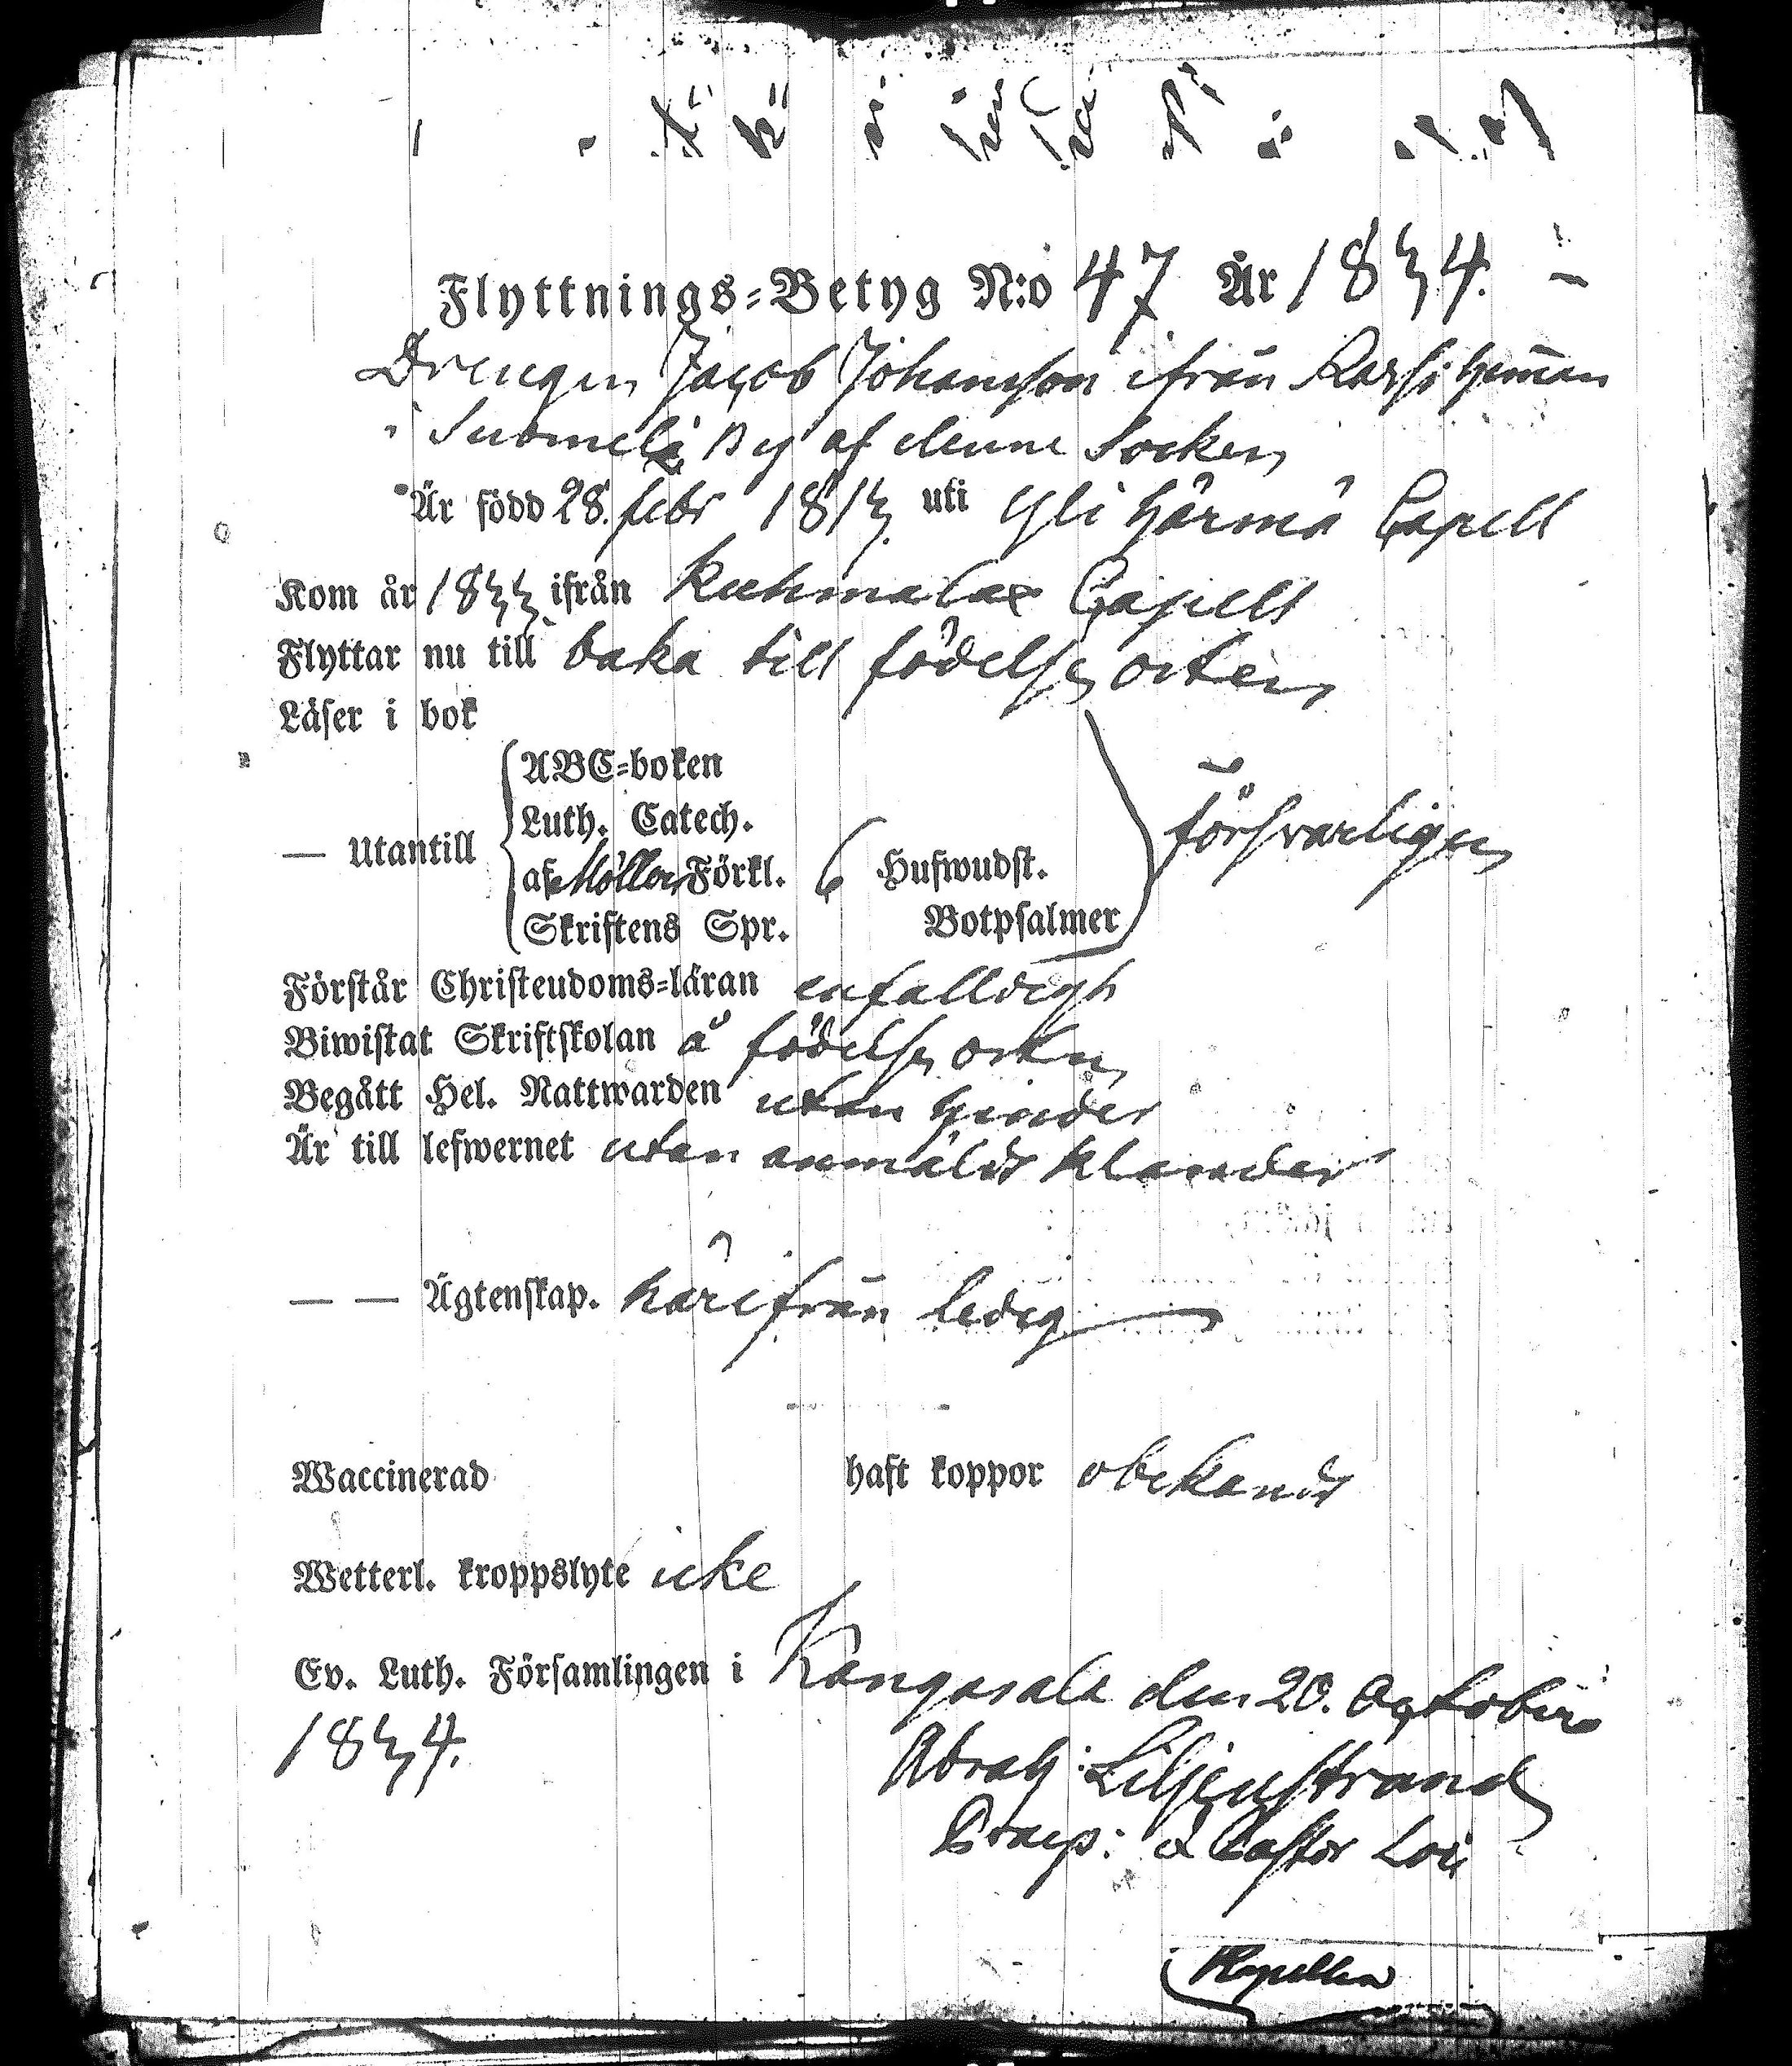 Flyttnings-Betyg N:o 47 År 1834.
Drengen Jacob Johansson ifrån Rassi heman
i Suomela By af denne Socken
Är född 28. febr 1813. uti Yli Härmä Capell
Kom år 1833 ifrån Kuhmalax Capell
Flyttar nu till baka till födelse orten
Läser i bok
— Utantill
ABC-boken
Luth. Catech.
af Möllers Förkl. 6 Hufwudst.
Skriftens Spr. Botpsalmer
försvarligen
Förstår Christendoms-läran enfalldigt
Biwistat Skriftskolan å födelse orten
Begått Hel. Nattwarden utan hinder
Är till lefwernet utan anmäldt klander
— — Ägtenskap. härifrån ledig
Waccinerad haft koppor obekandt
Wetterl. kroppslyte icke
Ev. Luth. Församlingen i Kangasala den 20. October
1834.
Abrah: Liljenstrand
Praep: & Pastor Loci
Kapellan